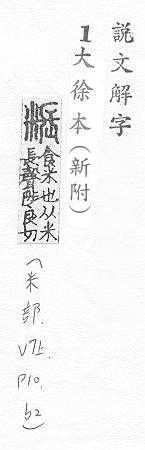 說文解字
1大徐本(新附)
粻 食米也从米
長聲陟良切
(米部. V7上. P10. b2)